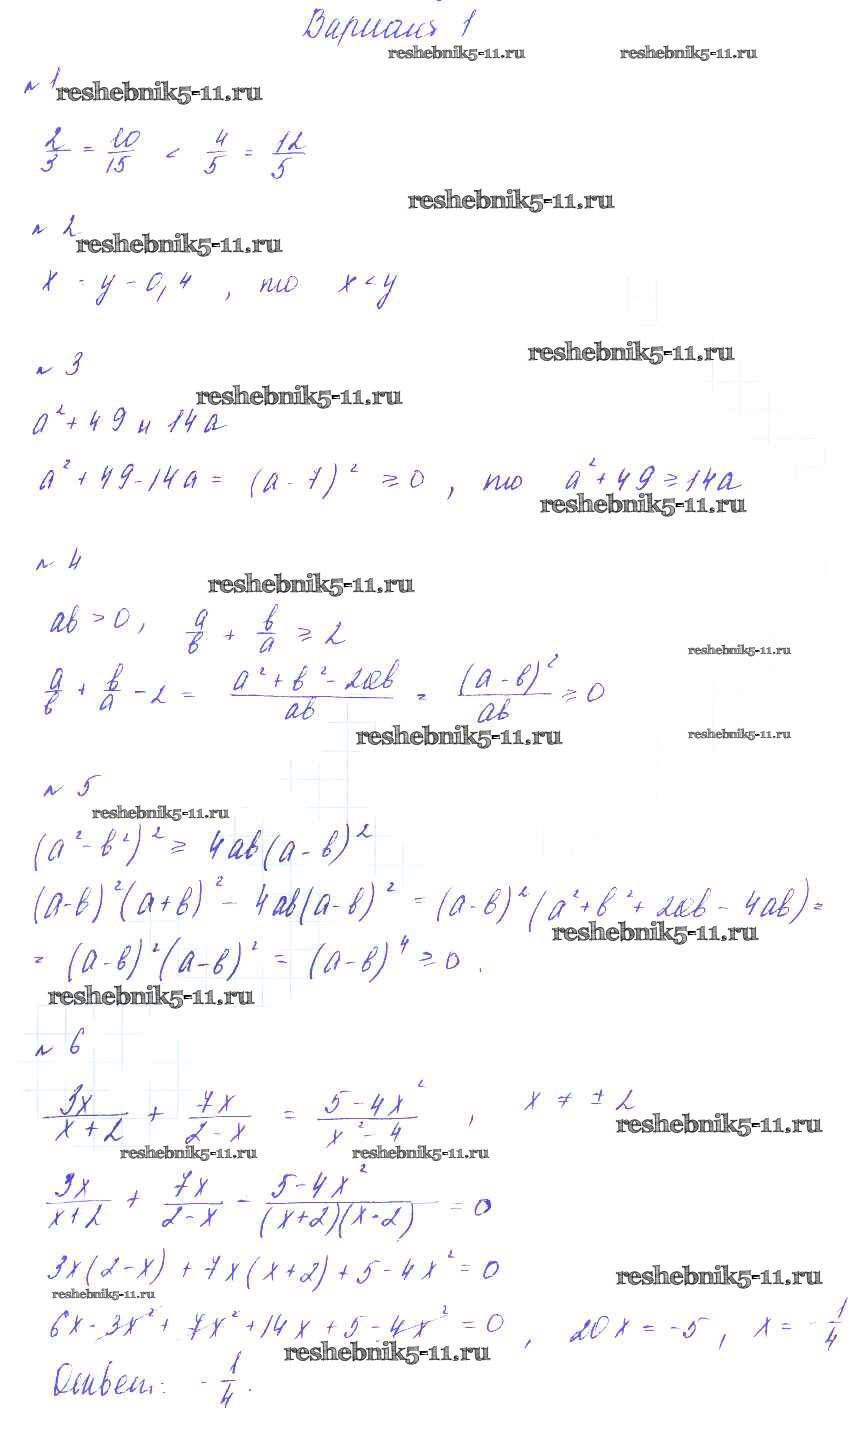 Вариант 1
reshebnik5-11.ru reshebnik5-11.ru
№ 1
reshebnik5-11.ru
2/3 = 10/15 < 4/5 = 12/5
reshebnik5-11.ru
№ 2
reshebnik5-11.ru
x - y - 0,4 , то x < y
reshebnik5-11.ru
№ 3
reshebnik5-11.ru
a² + 49 и 14a
a² + 49 - 14a = (a - 7)² ≥ 0 , то a² + 49 ≥ 14a
reshebnik5-11.ru
№ 4
reshebnik5-11.ru
ab > 0, a/b + b/a ≥ 2
reshebnik5-11.ru
a/b + b/a - 2 = (a² + b² - 2ab)/ab = (a - b)²/ab ≥ 0
reshebnik5-11.ru reshebnik5-11.ru
№ 5
reshebnik5-11.ru
(a² - b²)² ≥ 4ab(a - b)²
(a - b)²(a + b)² - 4ab(a - b)² = (a - b)²(a² + b² + 2ab - 4ab) =
reshebnik5-11.ru
= (a - b)²(a - b)² = (a - b)⁴ ≥ 0.
reshebnik5-11.ru
№ 6
3x/(x + 2) + 7x/(2 - x) = (5 - 4x²)/(x² - 4) , x ≠ ± 2
reshebnik5-11.ru
reshebnik5-11.ru reshebnik5-11.ru
3x/(x + 2) + 7x/(2 - x) - (5 - 4x²)/((x + 2)(x - 2)) = 0
3x(2 - x) + 7x(x + 2) + 5 - 4x² = 0
reshebnik5-11.ru
reshebnik5-11.ru
6x - 3x² + 7x² + 14x + 5 - 4x² = 0 , 20x = -5 , x = -1/4
reshebnik5-11.ru
Ответ: -1/4.